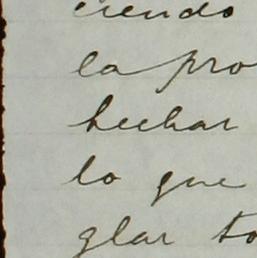 ciendo
la pro
hechar
lo que
glar to